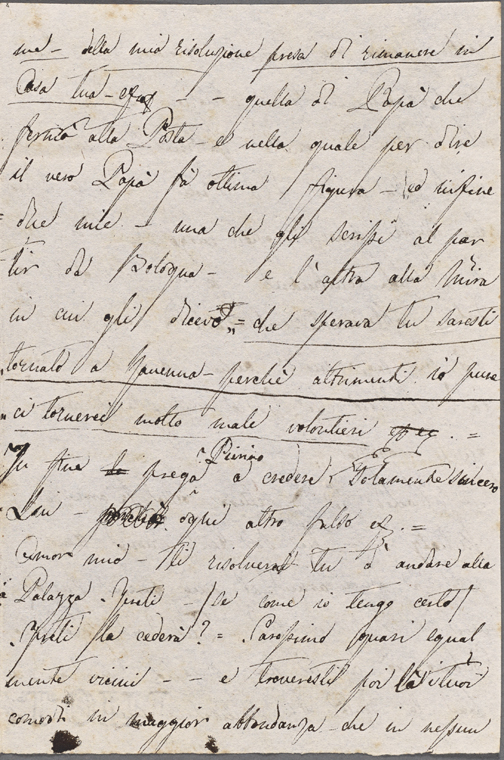 me – della mia risoluzione presa di rimanere in
Casa tua – – – quella di Papà che
fermò alla Posta – e nella quale per dire
il vero Papà fà ottima figura – ed infine
due mie – una che gli scrissi al par
tir da Bologna – e l'altra alla Mira
in cui gli dicevo „= che sperava tu saresti
tornato a Ravenna – perchè altrimenti io pure
ci tornerei molto male volontieri =
In fine prega Pierino a credere solamente sincero
Lui – ogni altro falso =
Amor mio – ti risolverai tu à andare alla
Palazza Gusti – (se come io tengo certo)
Gusti la cederà? = Saressimo quasi equal
mente vicini – – e troveresti poi là i tuoi
comodi in maggior abbondanza – che in nessun